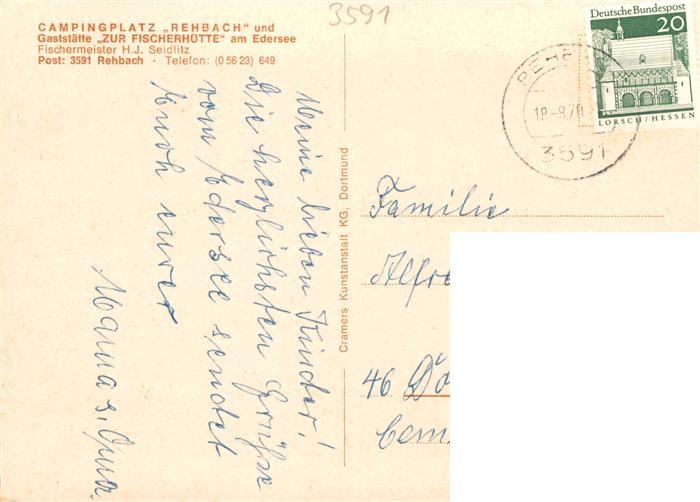 3591
CAMPINGPLATZ „REHBACH" und
Gaststätte „ZUR FISCHERHÜTTE" am Edersee
Fischermeister H.J. Seidlitz
Post: 3591 Rehbach · Telefon: (0 56 23) 649
Meine lieben Kinder!
Die herzlichsten Grüße
vom Edersee sendet
Euch eure
Mama u. Oma.
Cramers Kunstanstalt KG, Dortmund
Deutsche Bundespost
20
LORSCH/HESSEN
REHB
18-8.70
3591
Familie
Alfre
46 Do